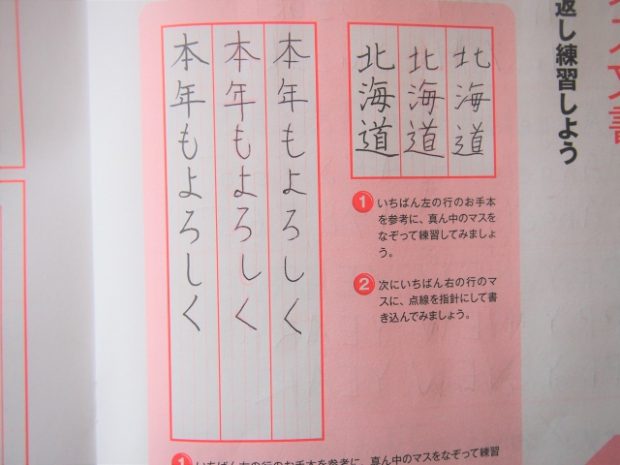 返し練習しよう
北海道
北海道
北海道
❶ いちばん左の行のお手本
を参考に、真ん中のマスを
なぞって練習してみましょ
う。
❷ 次にいちばん右の行のマ
スに、点線を指針にして書
き込んでみましょう。
本年もよろしく
本年もよろしく
本年もよろしく
❶ いちばん左の行のお手本を参考に、真ん中のマスをなぞって練習